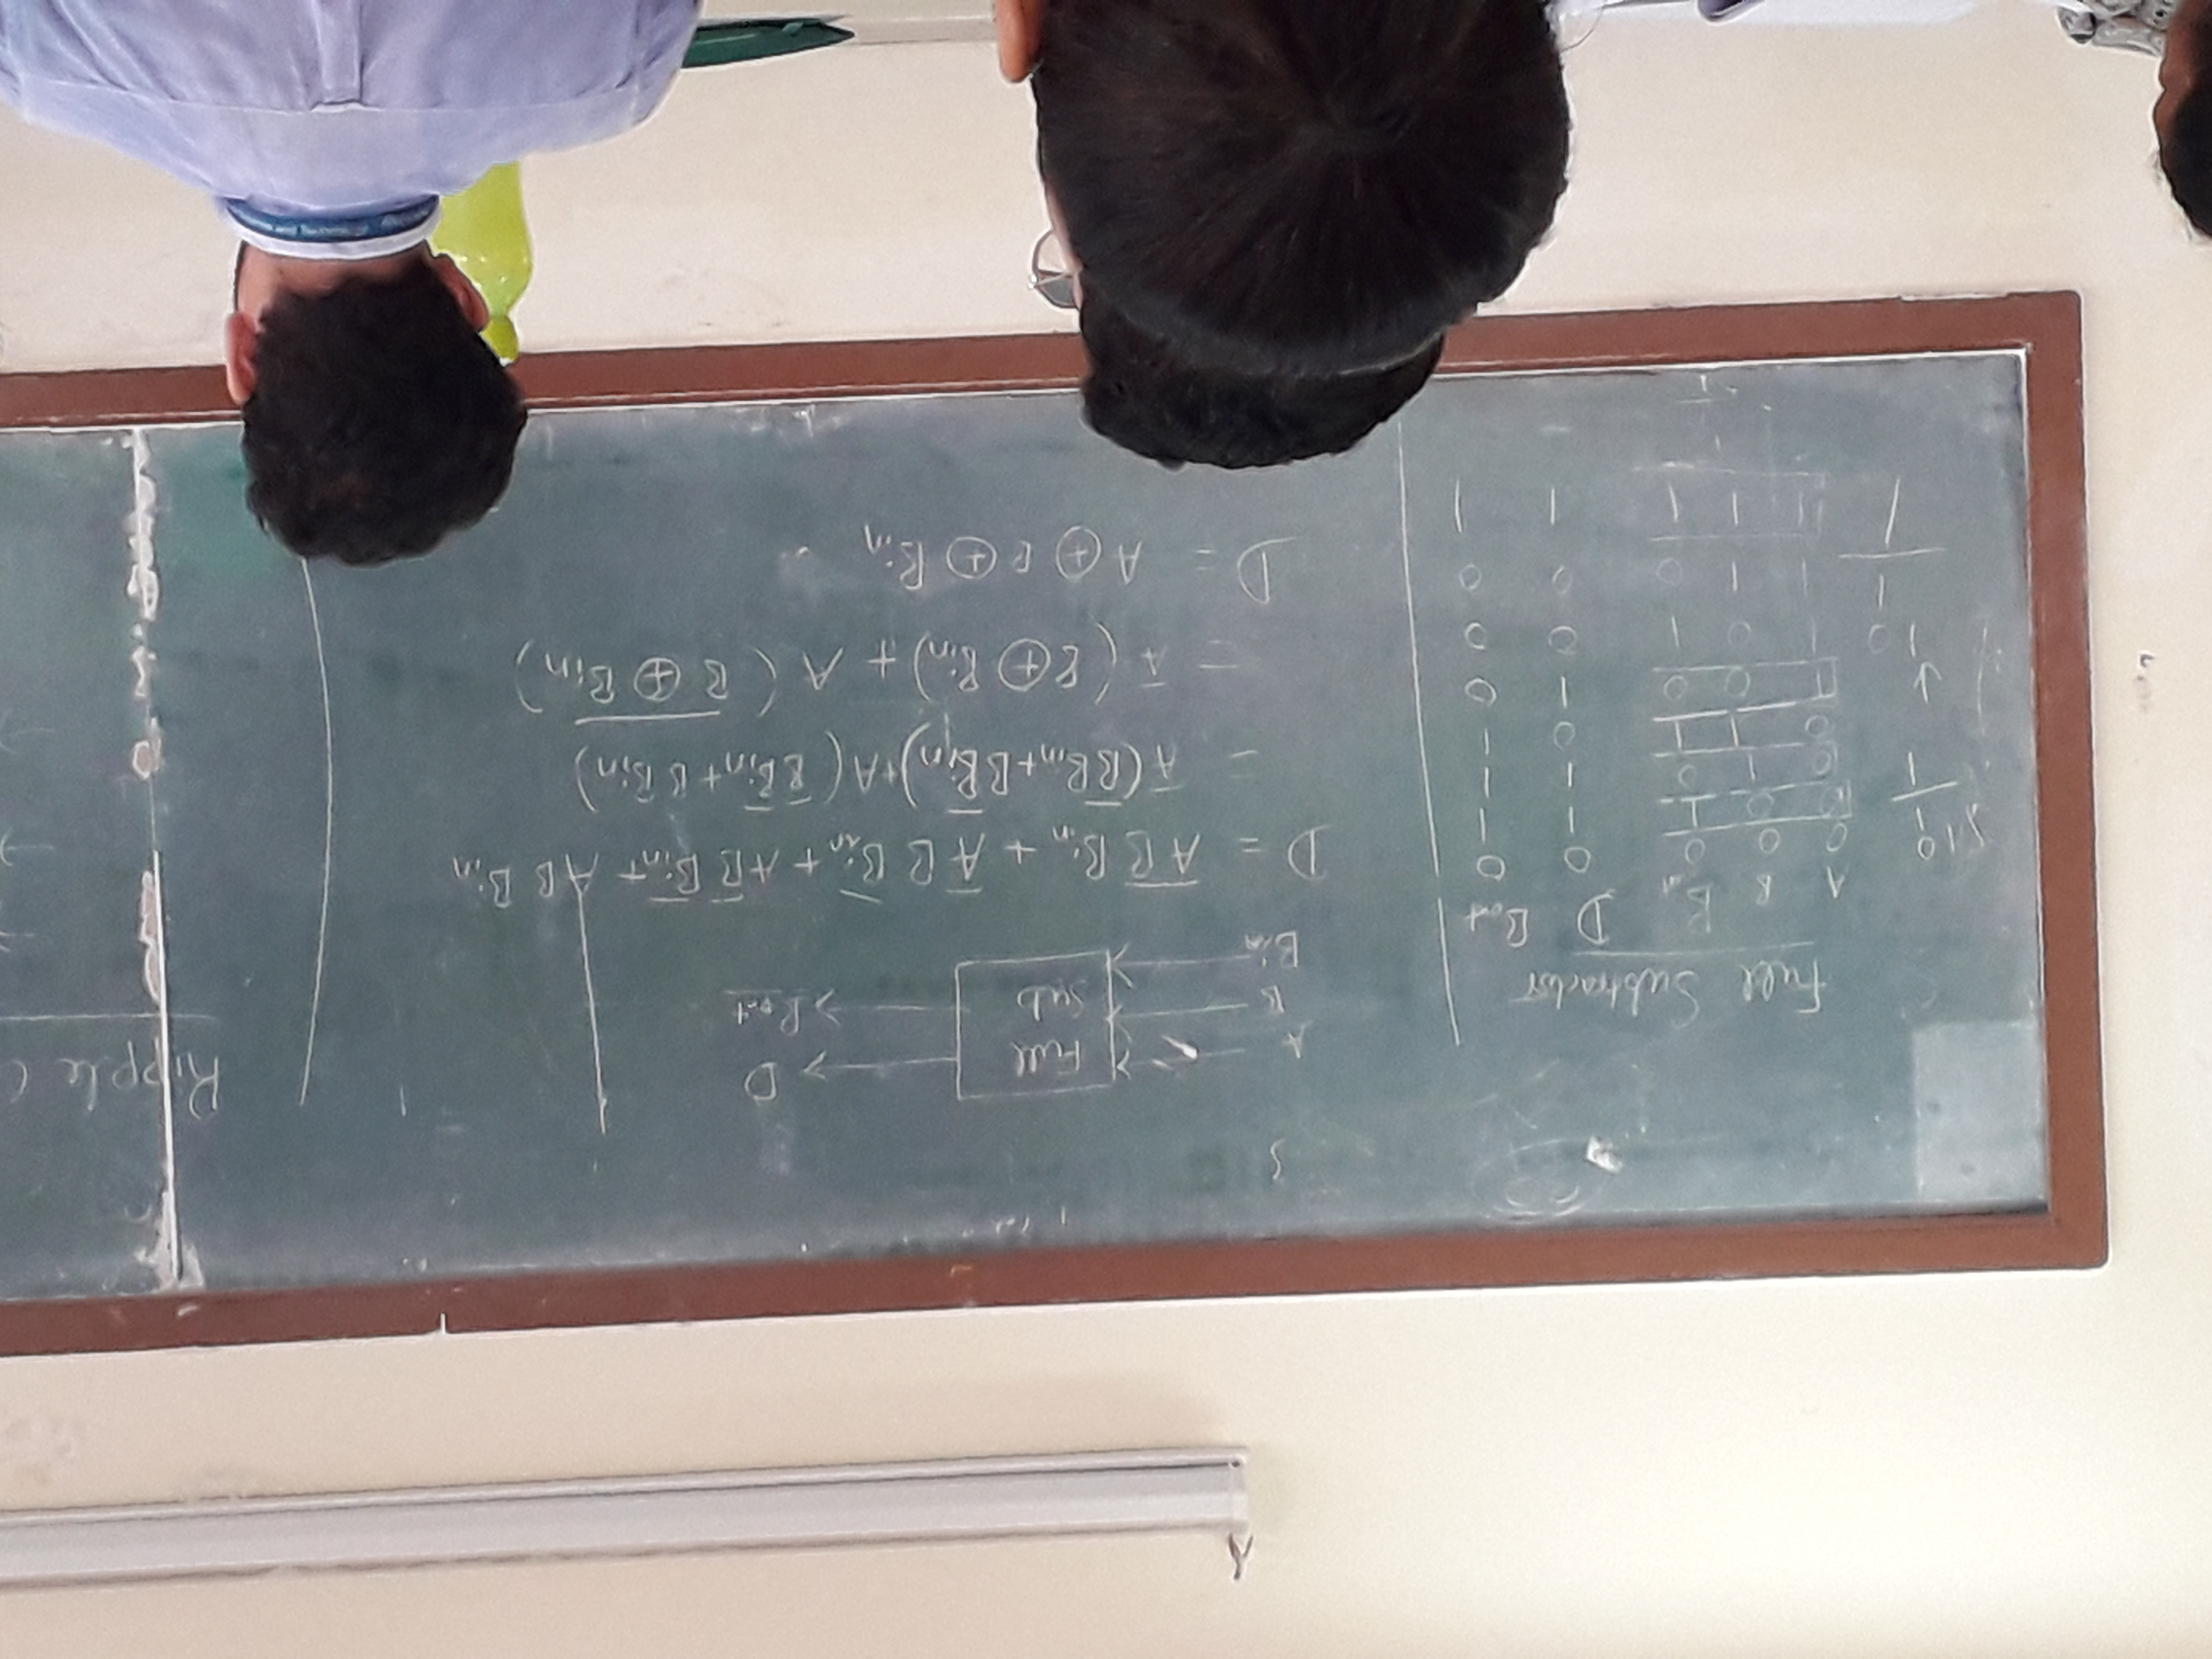 Full Subtractor
A B Bin D Bout
0 0 0 0 0
0 0 1 1 1
0 1 0 1 1
0 1 1 0 1
1 0 0 1 0
1 0 1 0 0
1 1 0 0 0
1 1 1 1 1
10
1
1
10
1
1
A
B
Bin
Full
Sub
D
Bout
D = A̅ B̅ Bin + A̅ B B̅in + A B̅ B̅in + A B Bin
= A̅ (B̅ Bin + B B̅in) + A ( B̅ B̅in + B Bin)
= A̅ (B ⊕ Bin) + A ( B ⊕ Bin )̅
D = A ⊕ B ⊕ Bin
Ripple C